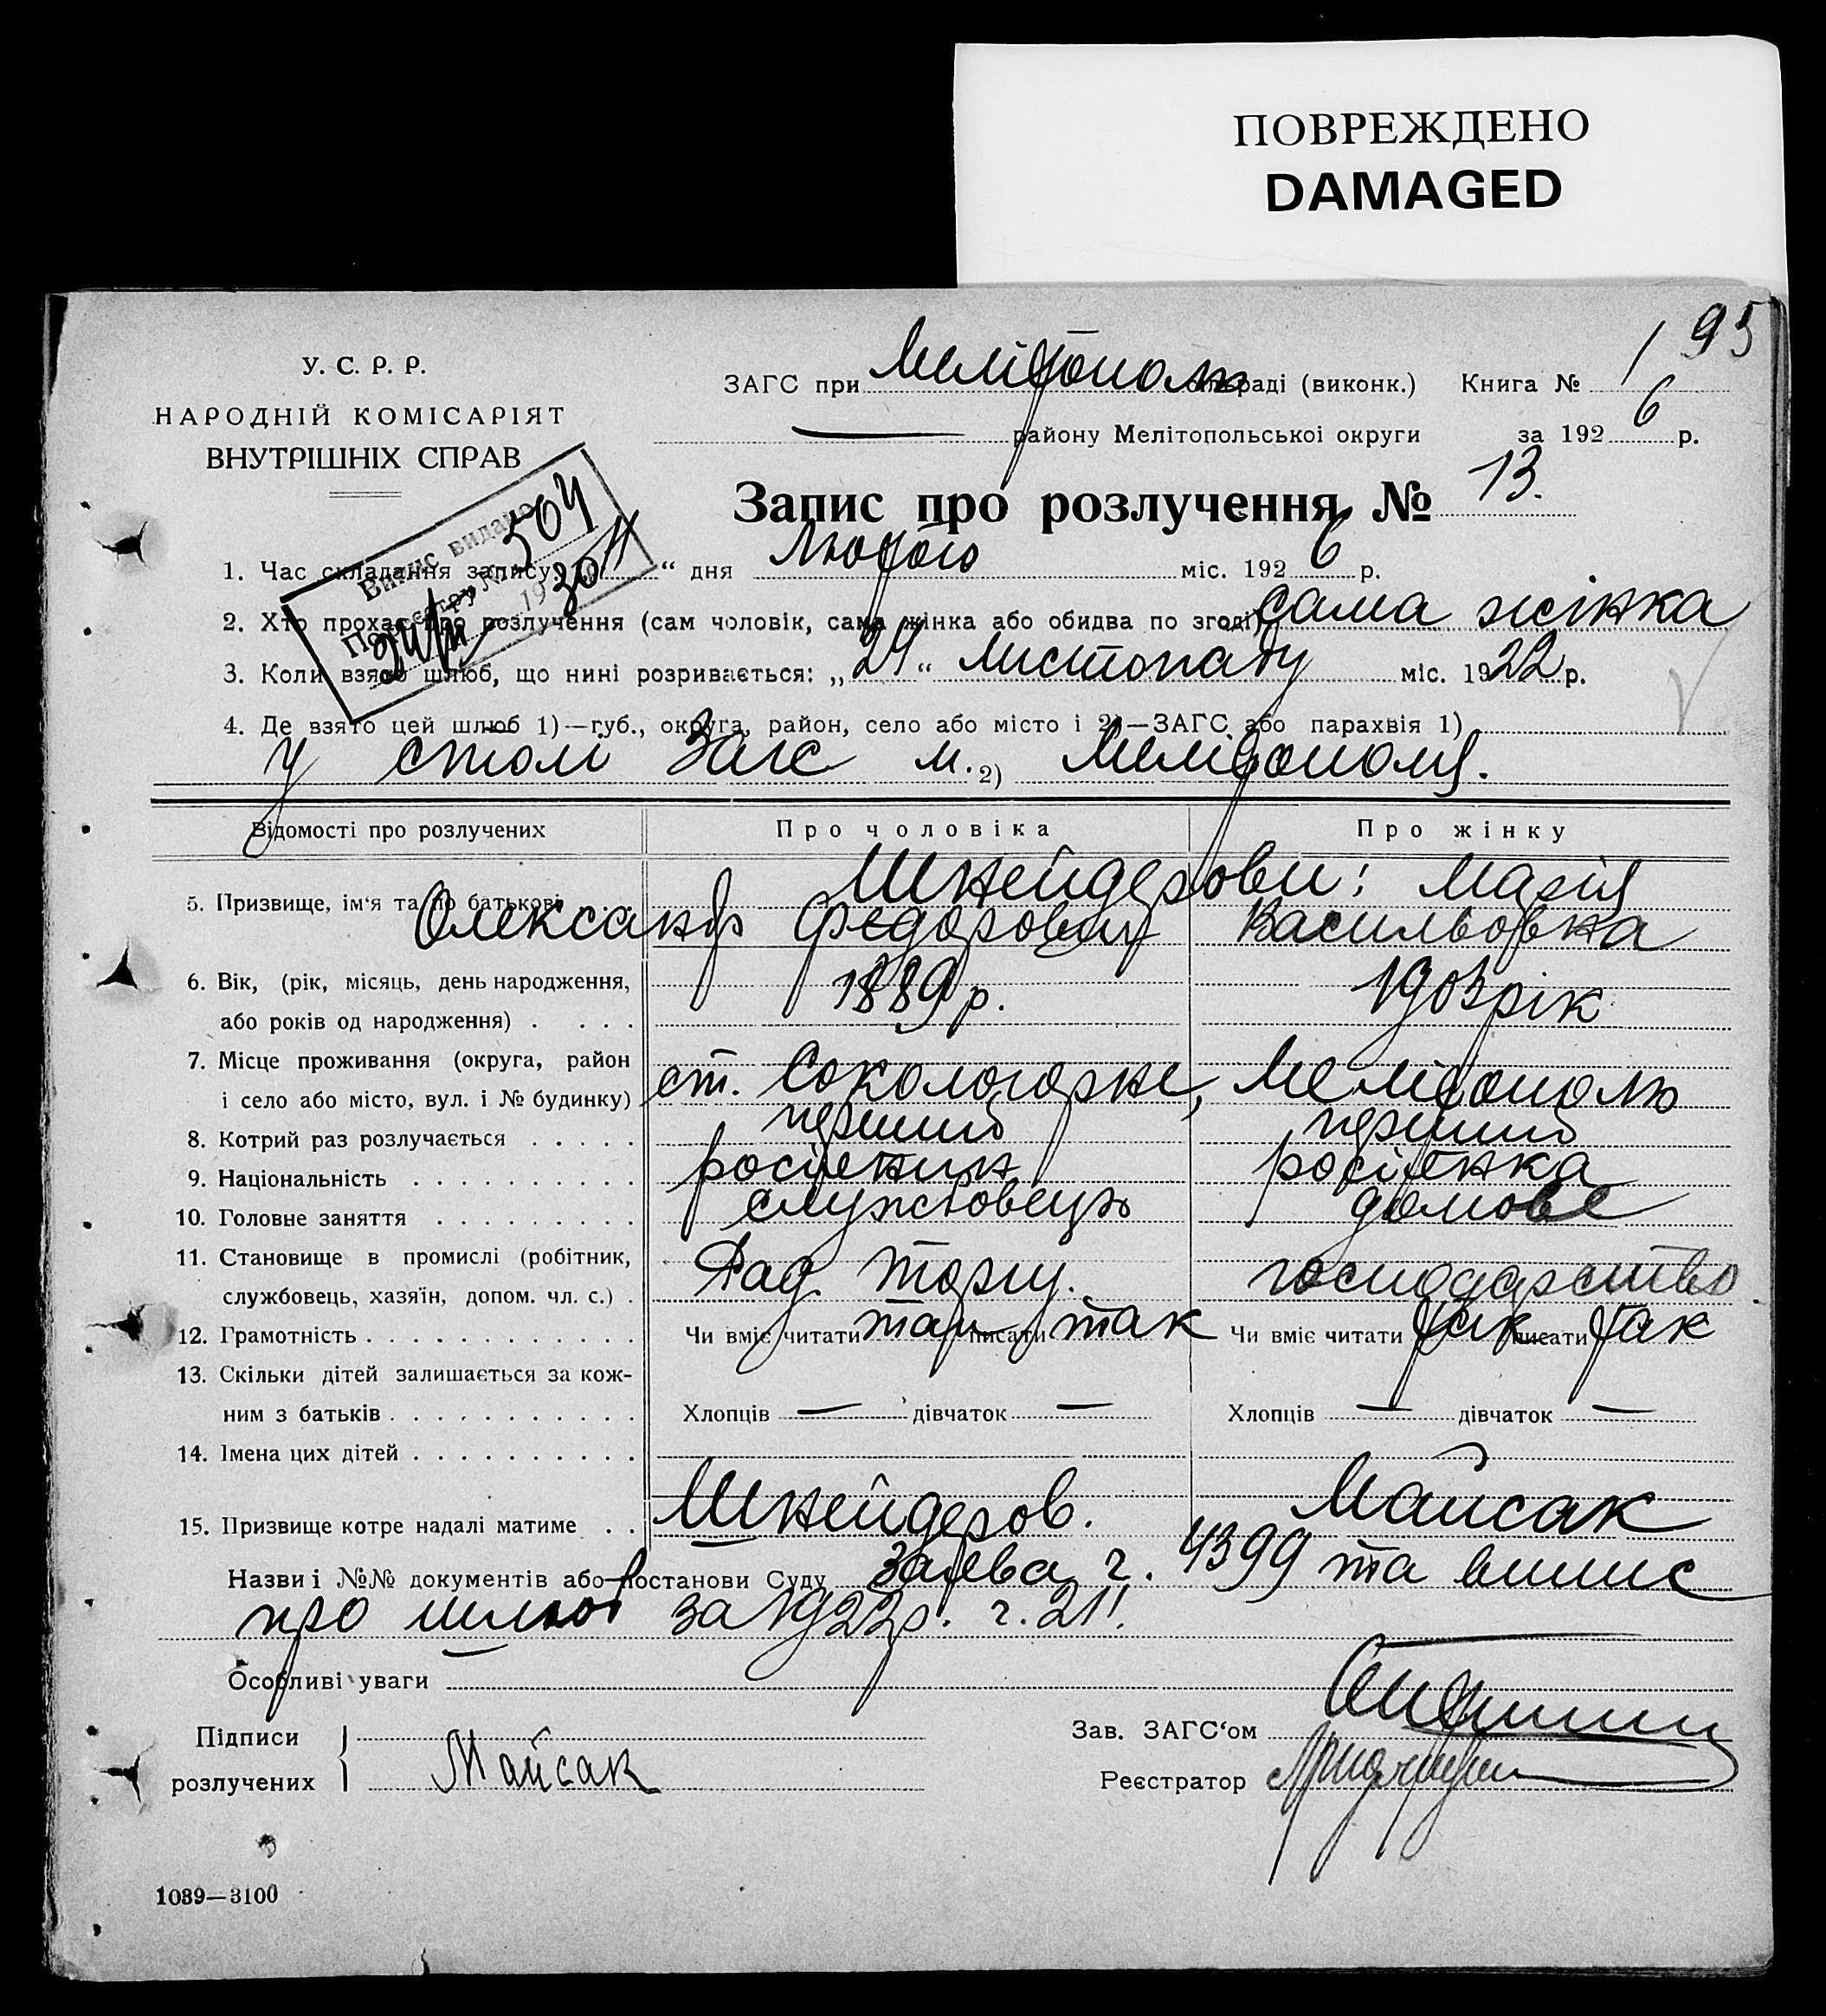 ПОВРЕЖДЕНО
DAMAGED
195
У. С. Р. Р.
НАРОДНІЙ КОМІСАРІЯТ
ВНУТРІШНІХ СПРАВ
ЗАГС при Мелітополь раді (виконк.) Книга № 1
району Мелітопольської округи за 1926 р.
Запис про розлучення № 13.
Випис видано
По реєстру № 504
24/IV 1930
1. Час складання запису: “ дня Лютого міс. 1926 р.
2. Хто прохає про розлучення (сам чоловік, сама жінка або обидва по згоді) сама жінка
3. Коли взято шлюб, що нині розривається: „24“ Листопаду міс. 1922 р.
4. Де взято цей шлюб 1)—губ., округа, район, село або місто і 2)—ЗАГС або парахвія 1)
у столі Загс м. 2) Мелітополя.
Відомості про розлучених Про чоловіка Про жінку
5. Призвище, ім'я та по батькові Шнейдерови: Марія
Олександр Федорович Васильовна
6. Вік, (рік, місяць, день народження,
або років од народження) . . . . 1889 р. 1903 рік
7. Місце проживання (округа, район
і село або місто, вул. і № будинку) ст. Сокологорне, Мелітополь
8. Котрий раз розлучається . . . . . перший перший
9. Національність . . . . . . . . . . росіянин росіянка
10. Головне заняття . . . . . . . . . службовець домове
11. Становище в промислі (робітник,
службовець, хазяїн, допом. чл. с.) . Рад. торгу. господарство.
12. Грамотність . . . . . . . . . . . . Чи вміє читати так писати так Чи вміє читати так писати так
13. Скільки дітей залишається за кож-
ним з батьків . . . . . . . . . . . Хлопців — дівчаток — Хлопців — дівчаток —
14. Імена цих дітей . . . . . . . . . .
15. Призвище котре надалі матиме . . Шнейдеров. Майсак
Назви і №№ документів або постанови Суду Заява ч. 4399 та випис
про шлюб за 1922 р. ч. 211.
Особливі уваги
Підписи
розлучених Майсак
Зав. ЗАГС'ом
Реєстратор
1039—3100